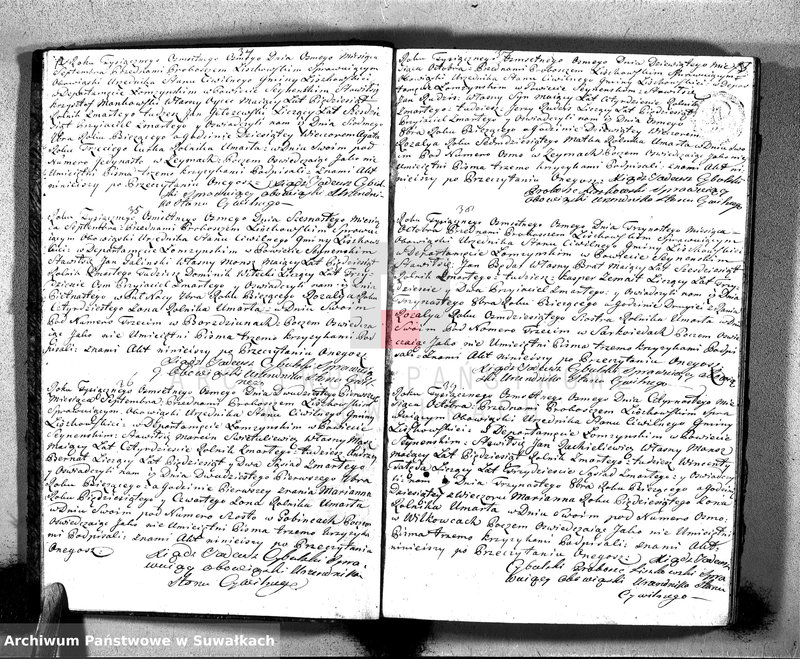 34
Roku Tysiącznego Osmsetnego Osmego Dnia Osmego Miesiąca
Septembra Przednami Proboszczem Liszkowskim Sprawuiącym
Obowiąski Urzednika Stanu Cywilnego Gminy Liszkowskiey
w Departamęcie Łomzynskim w Powiecie Seynenskim Stawili się
Krzysztof Mankowski Własny Oyciec Maiący Lat Pięćdziesiąt
Rolnik Zmarłego tudziesz Jan
Przyiaciel Zmarłego y Oswiadczyli nam iż Dnia Siodmego
7bra Roku Bieżącego o godzinie Dziesiątey Wieczorem Agata
Roku Trzeciego Curka Rolnika Umarła w Domu Swoim pod
Numero Jedynasto w Leypunach Poczem Oswiedczaiąc Jako nie
Umieiętni Pisma trzema Krzyzykami Podpisali Znami Akt
niniejszy po Przeczytaniu Onegosz Xiądz Tadeusz Cybul-
ski Sprawuiący obowiąski Urzendni-
ka Stanu Cywilnego
35
Roku Tysiącznego Osmsetnego Osmego Dnia Siemnastego Miesią-
ca Septembra Przednami Proboszczem Liszkowskim Sprawu-
iącym Obowiąski Urzednika Stanu Cywilnego Gminy Liszkow-
skiey w Departamęcie Łomzynskim w Powiecie Seynenskim
Stawili się Jan Zalinski Własny Monsz Maiący Lat Pięćdziesiąt
Rolnik Zmarłego Tudziesz Dominik Witecki Liczący Lat Trzy-
dziescie Osm Przyiaciel Zmarłego y Oswiadczyli nam iż Dnia
Pietnastego w Puł Nocy 7bra Roku Bierzącego Rozalya Roku
Cztyrdziestego Zona Rolnika Umarła w Domu Swoim
Pod Numero Trzecim w Poczem Oswiedcza-
iąc Jako nie Umieiętni Pisma trzema Krzyzykami Pod-
pisali Znami Akt niniejszy po Przeczytaniu Onegosz
Xiądz Tadeusz Cybulski Sprawuią-
cy Obowiąski Urzendnika Stanu Cywil-
nego
36
Roku Tysiącznego Osmsetnego Osmego Dnia Dwudziestego Pierwszego
Miesiąca Septembra Przednami Proboszczem Liszkowskim
Sprawuiącym Obowiąski Urzednika Stanu Cywilnego Gminy
Liszkowskiey w Departamęcie Łomzynskim w Powiecie
Seynenskim Stawili się Marcin Własny Monsz
Maiący Lat Cztyrdziescie Rolnik Zmarłego tudziesz Andrzey
Bernat Liczący Lat Pięćdziesiąt y Dwa Sąsiad Zmarłego
y Oswiadczyli nam iż Dnia Dwudziestego Pierwszego 7bra
Roku Bieżącego o Godzinie Pierwszey zrania Marianna
Roku Pięćdziesiątego y Czwartego Zona Rolnika Umarła
w Domu Swoim pod Numero Szosto w Poczem
Oswiedczaiąc Jako nie Umieiętni Pisma trzema Krzyzyka-
mi Podpisali Znami Akt niniejszy po Przeczytaniu
Onegosz Xiądz Tadeusz Cybulski Spra-
wuiący obowiąski Urzendnika
Stanu Cywilnego
37
Roku Tysiącznego Osmsetnego Osmego Dnia Dziewiątego Mie-
siąca Octobra Przednami Proboszczem Liszkowskim Sprawuiącym
Obowiąski Urzednika Stanu Cywilnego Gminy Liszkowskiey w Depar-
tamęcie Łomzynskim w Powiecie Seynenskim Stawili się
Jan Własny Syn Maiący Lat Cztyrdziescie Rolnik
Zmarłego tudziesz Jerzy Liczący Lat Pięćdziesiąt
Przyiaciel Zmarłego y Oswiadczyli nam iż Dnia
8bra Roku Bieżącego o godzinie Dziewiątey Wieczorem
Rozalya Roku Siedmdziesiątego Matka Rolnika Umarła w Domu Swo-
im Pod Numero Osmo w Leypunach Poczem Oswiedczaiąc Jako nie
Umieiętni Pisma trzema Krzyzykami Podpisali Znami Akt
niniejszy po Przeczytaniu Onegosz Xiądz Tadeusz Cybulski
Proboszcz Liszkowski Sprawuiący
obowiąski Urzendnika Stanu Cywilnego
38
Roku Tysiącznego Osmsetnego Osmego Dnia Trzynastego Miesiąca
Octobra Przednami Proboszczem Liszkowskim Sprawuiącym
Obowiąski Urzednika Stanu Cywilnego Gminy Liszkowskiey
w Departamęcie Łomzynskim w Powiecie Seynenskim
Stawili się Jan Własny Brat Maiący Lat Szesdziesiąt
Rolnik Zmarłego tudziesz Kasper Liczący Lat Trzy-
dziescie y Dwa Przyiaciel Zmarłego y Oswiadczyli nam iż Dnia
Trzynastego 8bra Roku Bieżącego o godzinie Drugiey z Rania
Rozalya Roku Osmdziesiątego Siostra Rolnika Umarła w Domu
Swoim Pod Numero Trzecim w Poczem Oswied-
czaiąc Jako nie Umieiętni Pisma trzema Krzyzykami Podpi-
sali Znami Akt niniejszy po Przeczytaniu Onegosz
Xiądz Tadeusz Cybulski Sprawuiący obowią-
ski Urzendnika Stanu Cywilnego
39
Roku Tysiącznego Osmsetnego Osmego Dnia Cztyrnastego Mie-
siąca Octobra Przednami Proboszczem Liszkowskim Spra-
wuiącym Obowiąski Urzednika Stanu Cywilnego Gminy
Liszkowskiey w Departamęcie Łomzynskim w Powiecie
Seynenskim Stawili się Jan Własny Monsz
Maiący Lat Pięćdziesiąt Rolnik Zmarłego tudziesz Wincenty
Liczący Lat Trzydziescie Sąsiad Zmarłego y Oswiadczy-
li nam iż Dnia Trzynastego 8bra Roku Bieżącego o godzinie
Dziesiątey z Wieczora Marianna Roku Pięćdziesiątego Zona
Rolnika Umarła w Domu Swoim pod Numero Osmo
w Wilkowcach Poczem Oswiedczaiąc Jako nie Umieiętni
Pisma trzema Krzyzykami Podpisali Znami Akt
niniejszy po Przeczytaniu Onegosz Xiądz Tadeusz
Cybulski Proboszcz Liszkowski Spra-
wuiący obowiąski Urzendnika Stanu
Cywilnego
Archiwum Państwowe w Suwałkach